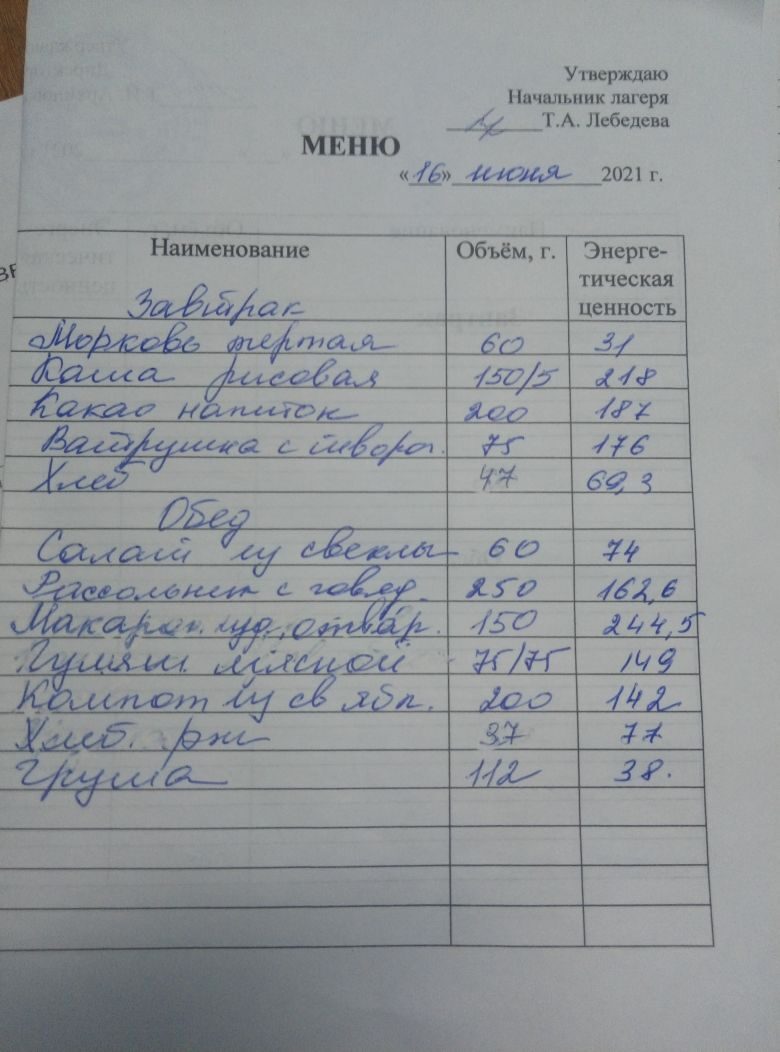 Утверждаю
Начальник лагеря
Т.А. Лебедева
МЕНЮ
«16» июня 2021 г.
Наименование Объём, г. Энерге-
тическая
ценность
Завтрак
Морковь тертая 60 31
Каша рисовая 150/5 218
Какао напиток 200 187
Ватрушка с творог. 75 176
Хлеб 47 69,3
Обед
Салат из свеклы 60 74
Рассольник с говяд. 250 162,6
Макарон. изд. отвар. 150 244,5
Гуляш мясной 75/75 149
Компот из св ябл. 200 142
Хлеб. рж 37 77
Груша 112 38.